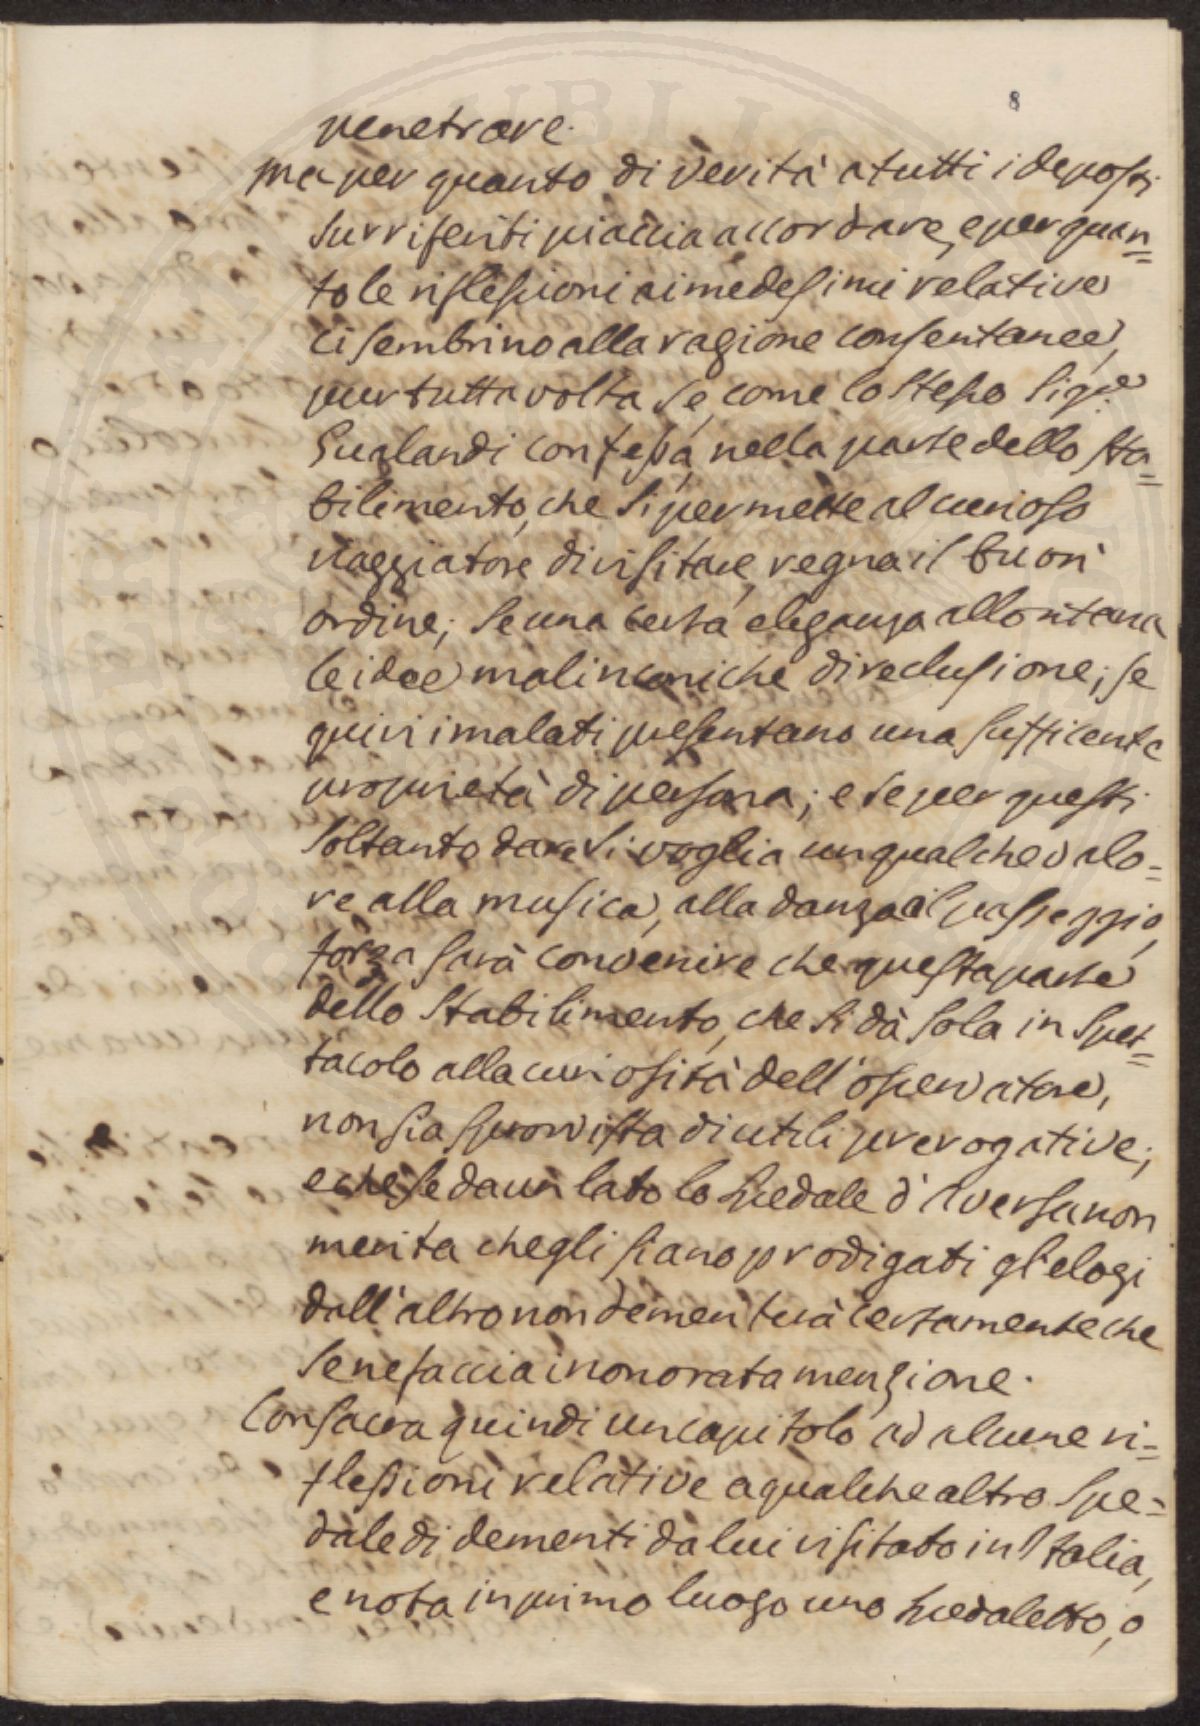 8
penetrare.
ma per quanto di verità a tutti i deposti
surriferiti piaccia accordare, e per quan=
to le riflessioni ai medesimi relative
ci sembrino alla ragione consentanee,
pur tutta volta se, come lo stesso Sigre
Gualandi confessa, nella parte dello sta=
bilimento, che si permette al curioso
viaggiatore di visitare, regna il buon
ordine; se una certa eleganza allontana
le idee malinconiche di reclusione; se
quivi i malati presentano una sufficente
proprietà di persona; e se per questi
soltanto dare si voglia un qualche valo=
re alla musica, alla danza al passeggio,
forza sarà convenire che questa parte
dello Stabilimento, che si dà sola in Spet=
tacolo alla curiosità dell'osservatore,
non sia sprovvista di utili prerogative;
e che se da un lato lo Spedale d'Aversa non
merita che gli siano prodigati gl'elogi
dall'altro non demeriterà certamente che
se ne faccia inonorata menzione.
Consacra quindi un capitolo ad alcune ri=
flessioni relative a qualche altro Spe=
dale di dementi da lui visitato in Italia,
e nota in primo luogo uno Spedaletto, o